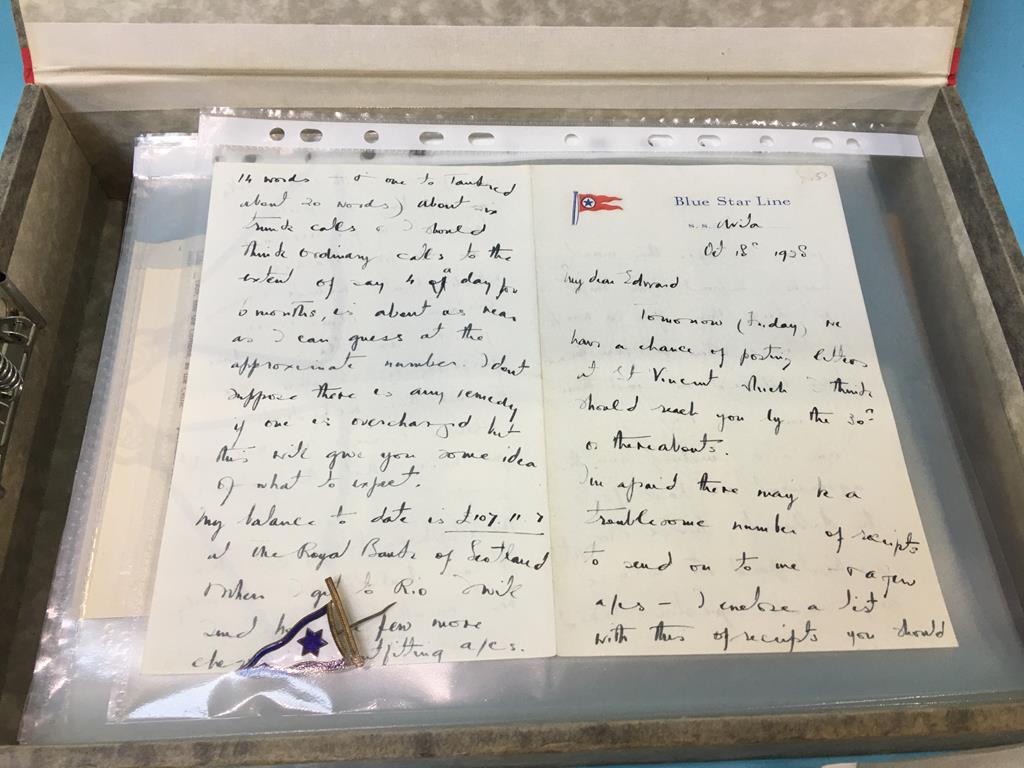 14 words – & one to
about 20 words) about six
trunk calls & I should
think ordinary calls to the
extent of say 4 a day for
6 months, is about as near
as I can guess at the
approximate number. I dont
suppose there is any remedy
if one is overcharged but
this will give you some idea
of what to expect.
My balance to date is £107.11.7
at the Royal Bank of Scotland
When I get to Rio I will
send few more
a/cs.
Blue Star Line
S.S.
Oct 18th 1938
My dear Edward
Tomorrow (Friday) we
have a chance of posting letters
at St Vincent which I think
should reach you by the 30th
or thereabouts.
I'm afraid there may be a
troublesome number of receipts
to send on to me – & a few
a/cs – I enclose a list
with this of receipts you should